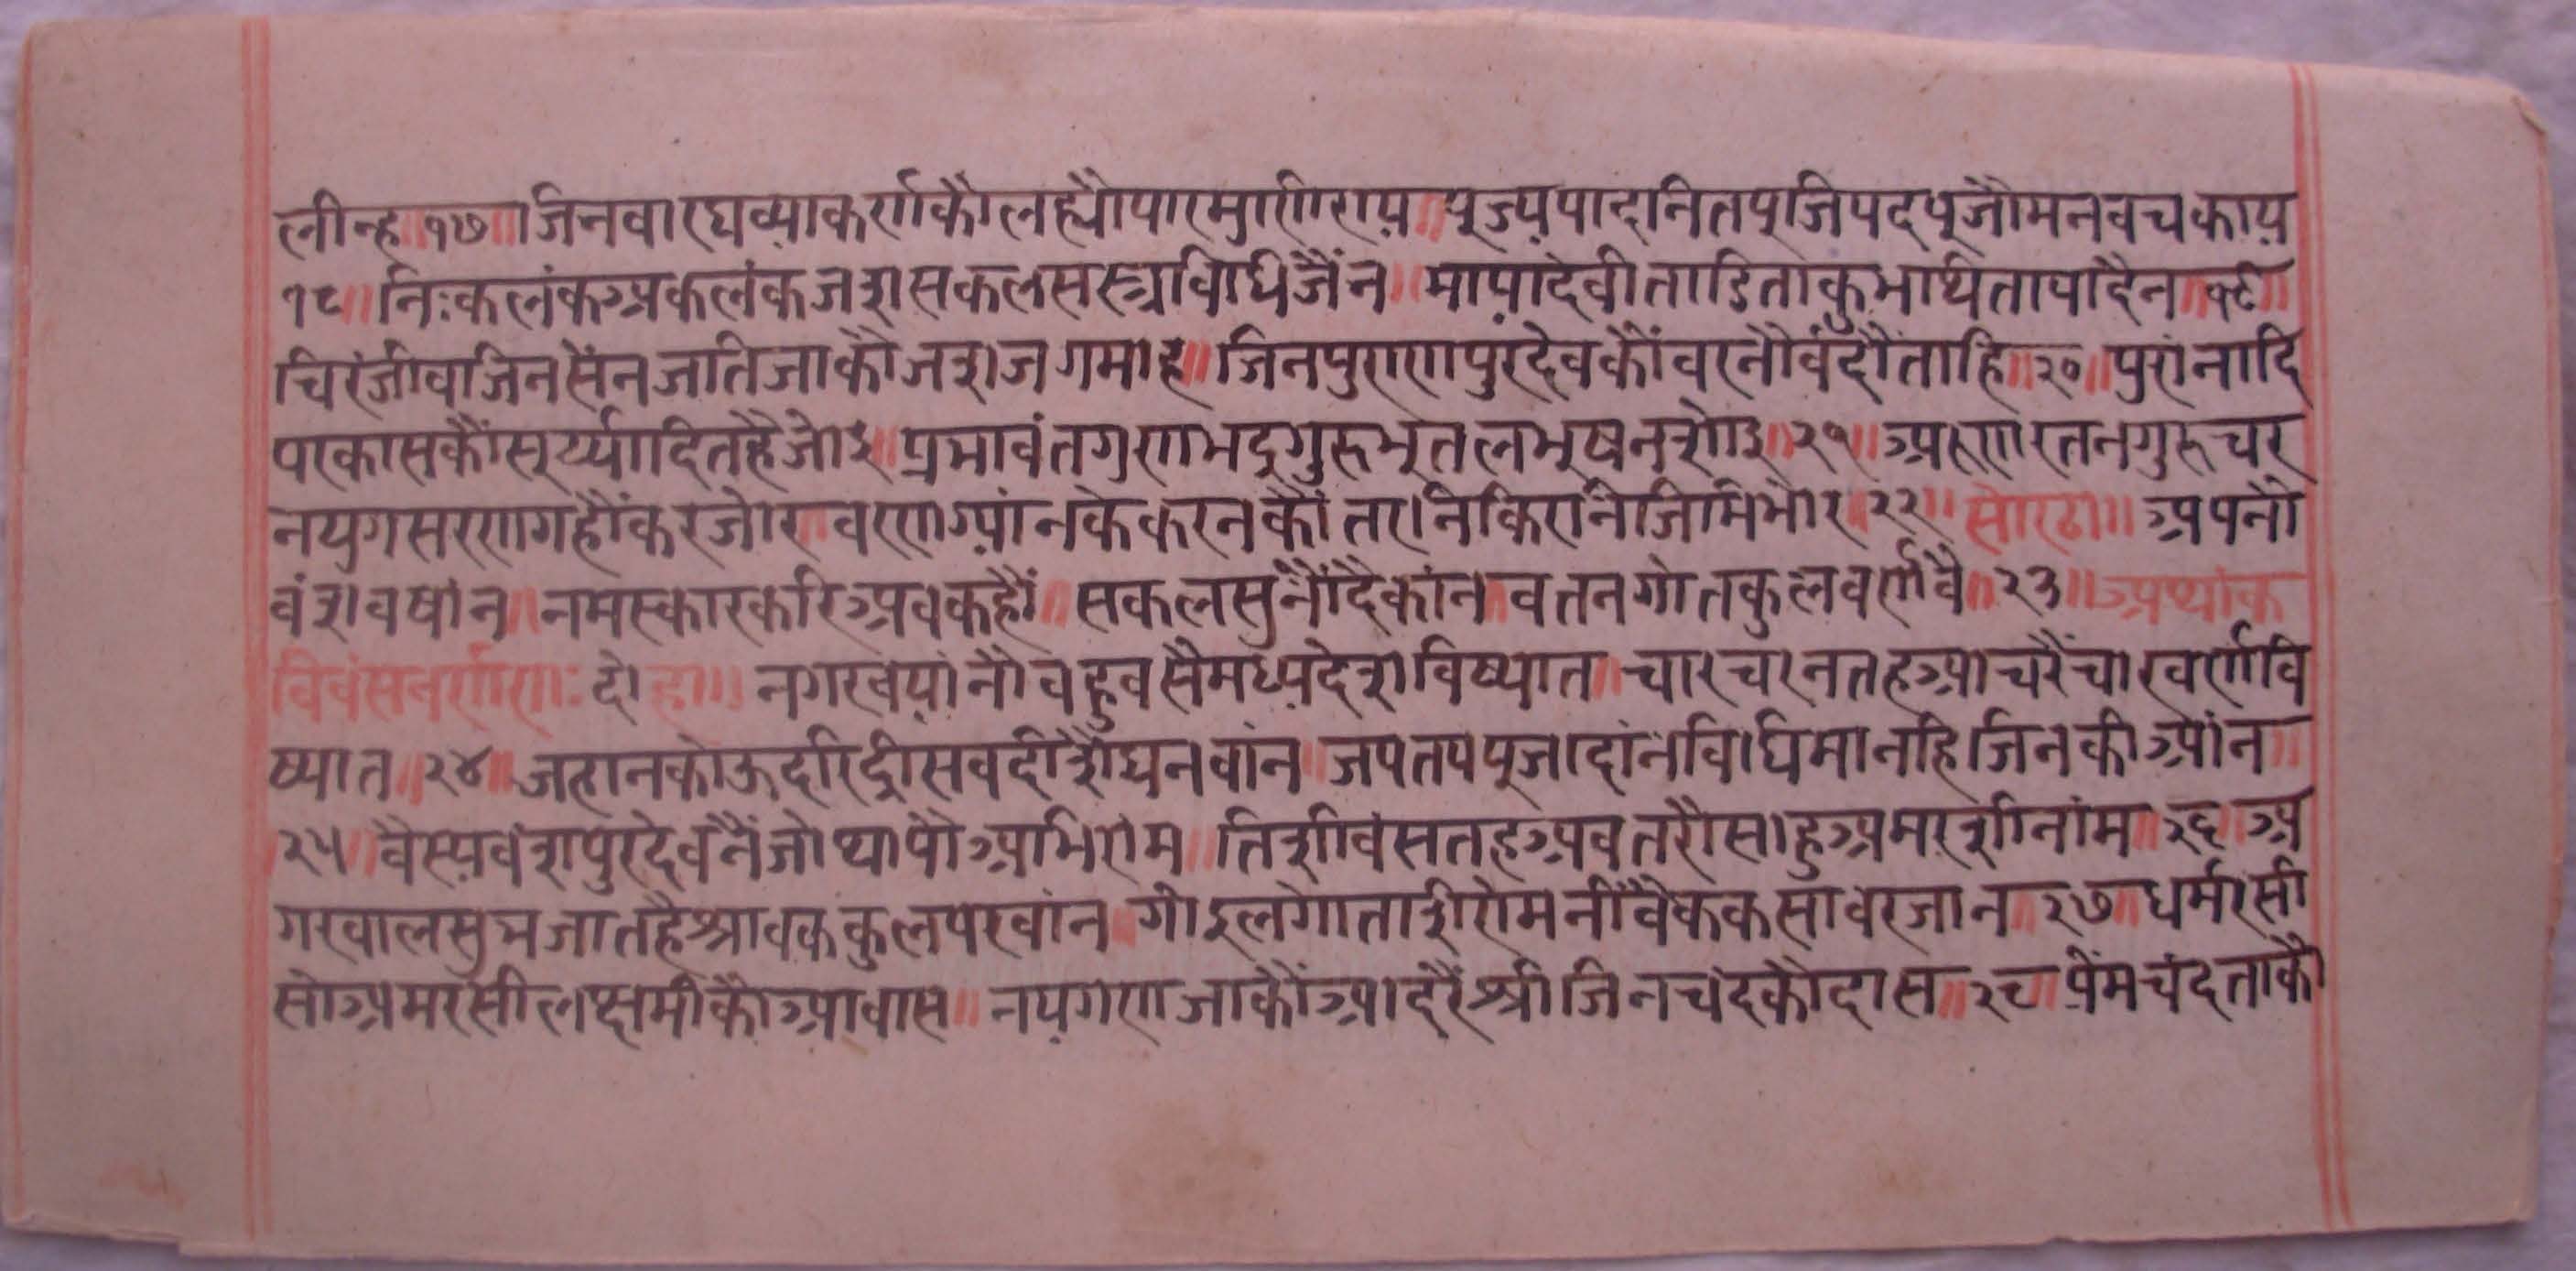 लीन्ह॥१७॥जिनवारघव्याकर्णकौलह्यौपारमुणिराय॥पूज्यपादनितपूजिपदपूजौमनवचकाय
१८॥निःकलंकअकलंकजशसकलसस्त्रविधिजैंन॥मायादेवीताडिताकुभाथितापादैन॥१९॥
चिरंजीवजिनसेंनजतिजाकौजशजगमाह॥जिनपुराणपुरदेवकौंवरनौवंदौंताहि॥२०॥पुरांनादि
परकासकौंसूर्य्यादितहैजोइ॥प्रभावंतगुणभद्रगुरूभूतलभूषनशोइ॥२१॥अरुणरतनगुरूचर
नयुगसरणगहौंकरजोर॥वरणग्यांनकेकरनकौंतरनिकिरनिजिमिभोर॥२२॥सोरठा॥अपनौ
वंशवषांन॥नमस्कारकरिअवकहौं॥सकलसुनौंदैकांन॥वतनगोतकुलवर्णवै॥२३॥अथक
विवंसवर्णण॥ः दोहा॥नगरवयांनौवहुवसैमध्यदेशविष्यात॥चारचरनतहआचरैंचारवर्णवि
ष्यात॥२४॥जहानकोऊदरिद्रीसवदीशैधनवांन॥जपतपपूजादांनविधिमानहिजिनकीआंन॥
२५॥वैस्यवंशपुरदेवनैंजोथापौअभिराम॥तिशीवंसतहअवतरौसाहुअमरशीनांम॥२६॥अ
गरवालसुभजातहैश्रावककुलपरवांन॥गोइलगोताशीरोमनींवैकेकसावरजान॥२७॥धर्मरसी
सोअमरसीलक्षमीकौआवास॥नयगणजाकौंआदरैंश्रीजिनचंदकौदास॥२८॥पेंमचंदताकौ